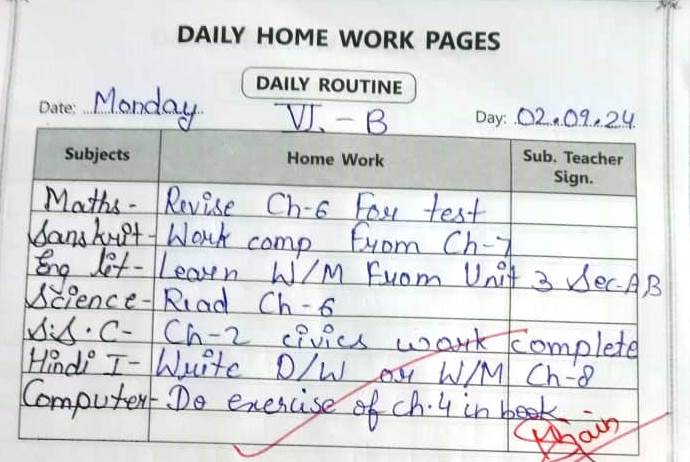 DAILY HOME WORK PAGES
DAILY ROUTINE
Date: Monday VI. - B Day: 02.09.24
Subjects Home Work Sub. Teacher Sign.
Maths - Revise Ch-6 For test
Sanskrit - Work comp From Ch-7
Eng lit - Learn W/M From Unit 3 Sec-A,B
Science - Read Ch - 6
S.S.C - Ch-2 civics work complete
Hindi I - Write D/W or W/M Ch-8
Computer - Do exercise of ch.4 in book